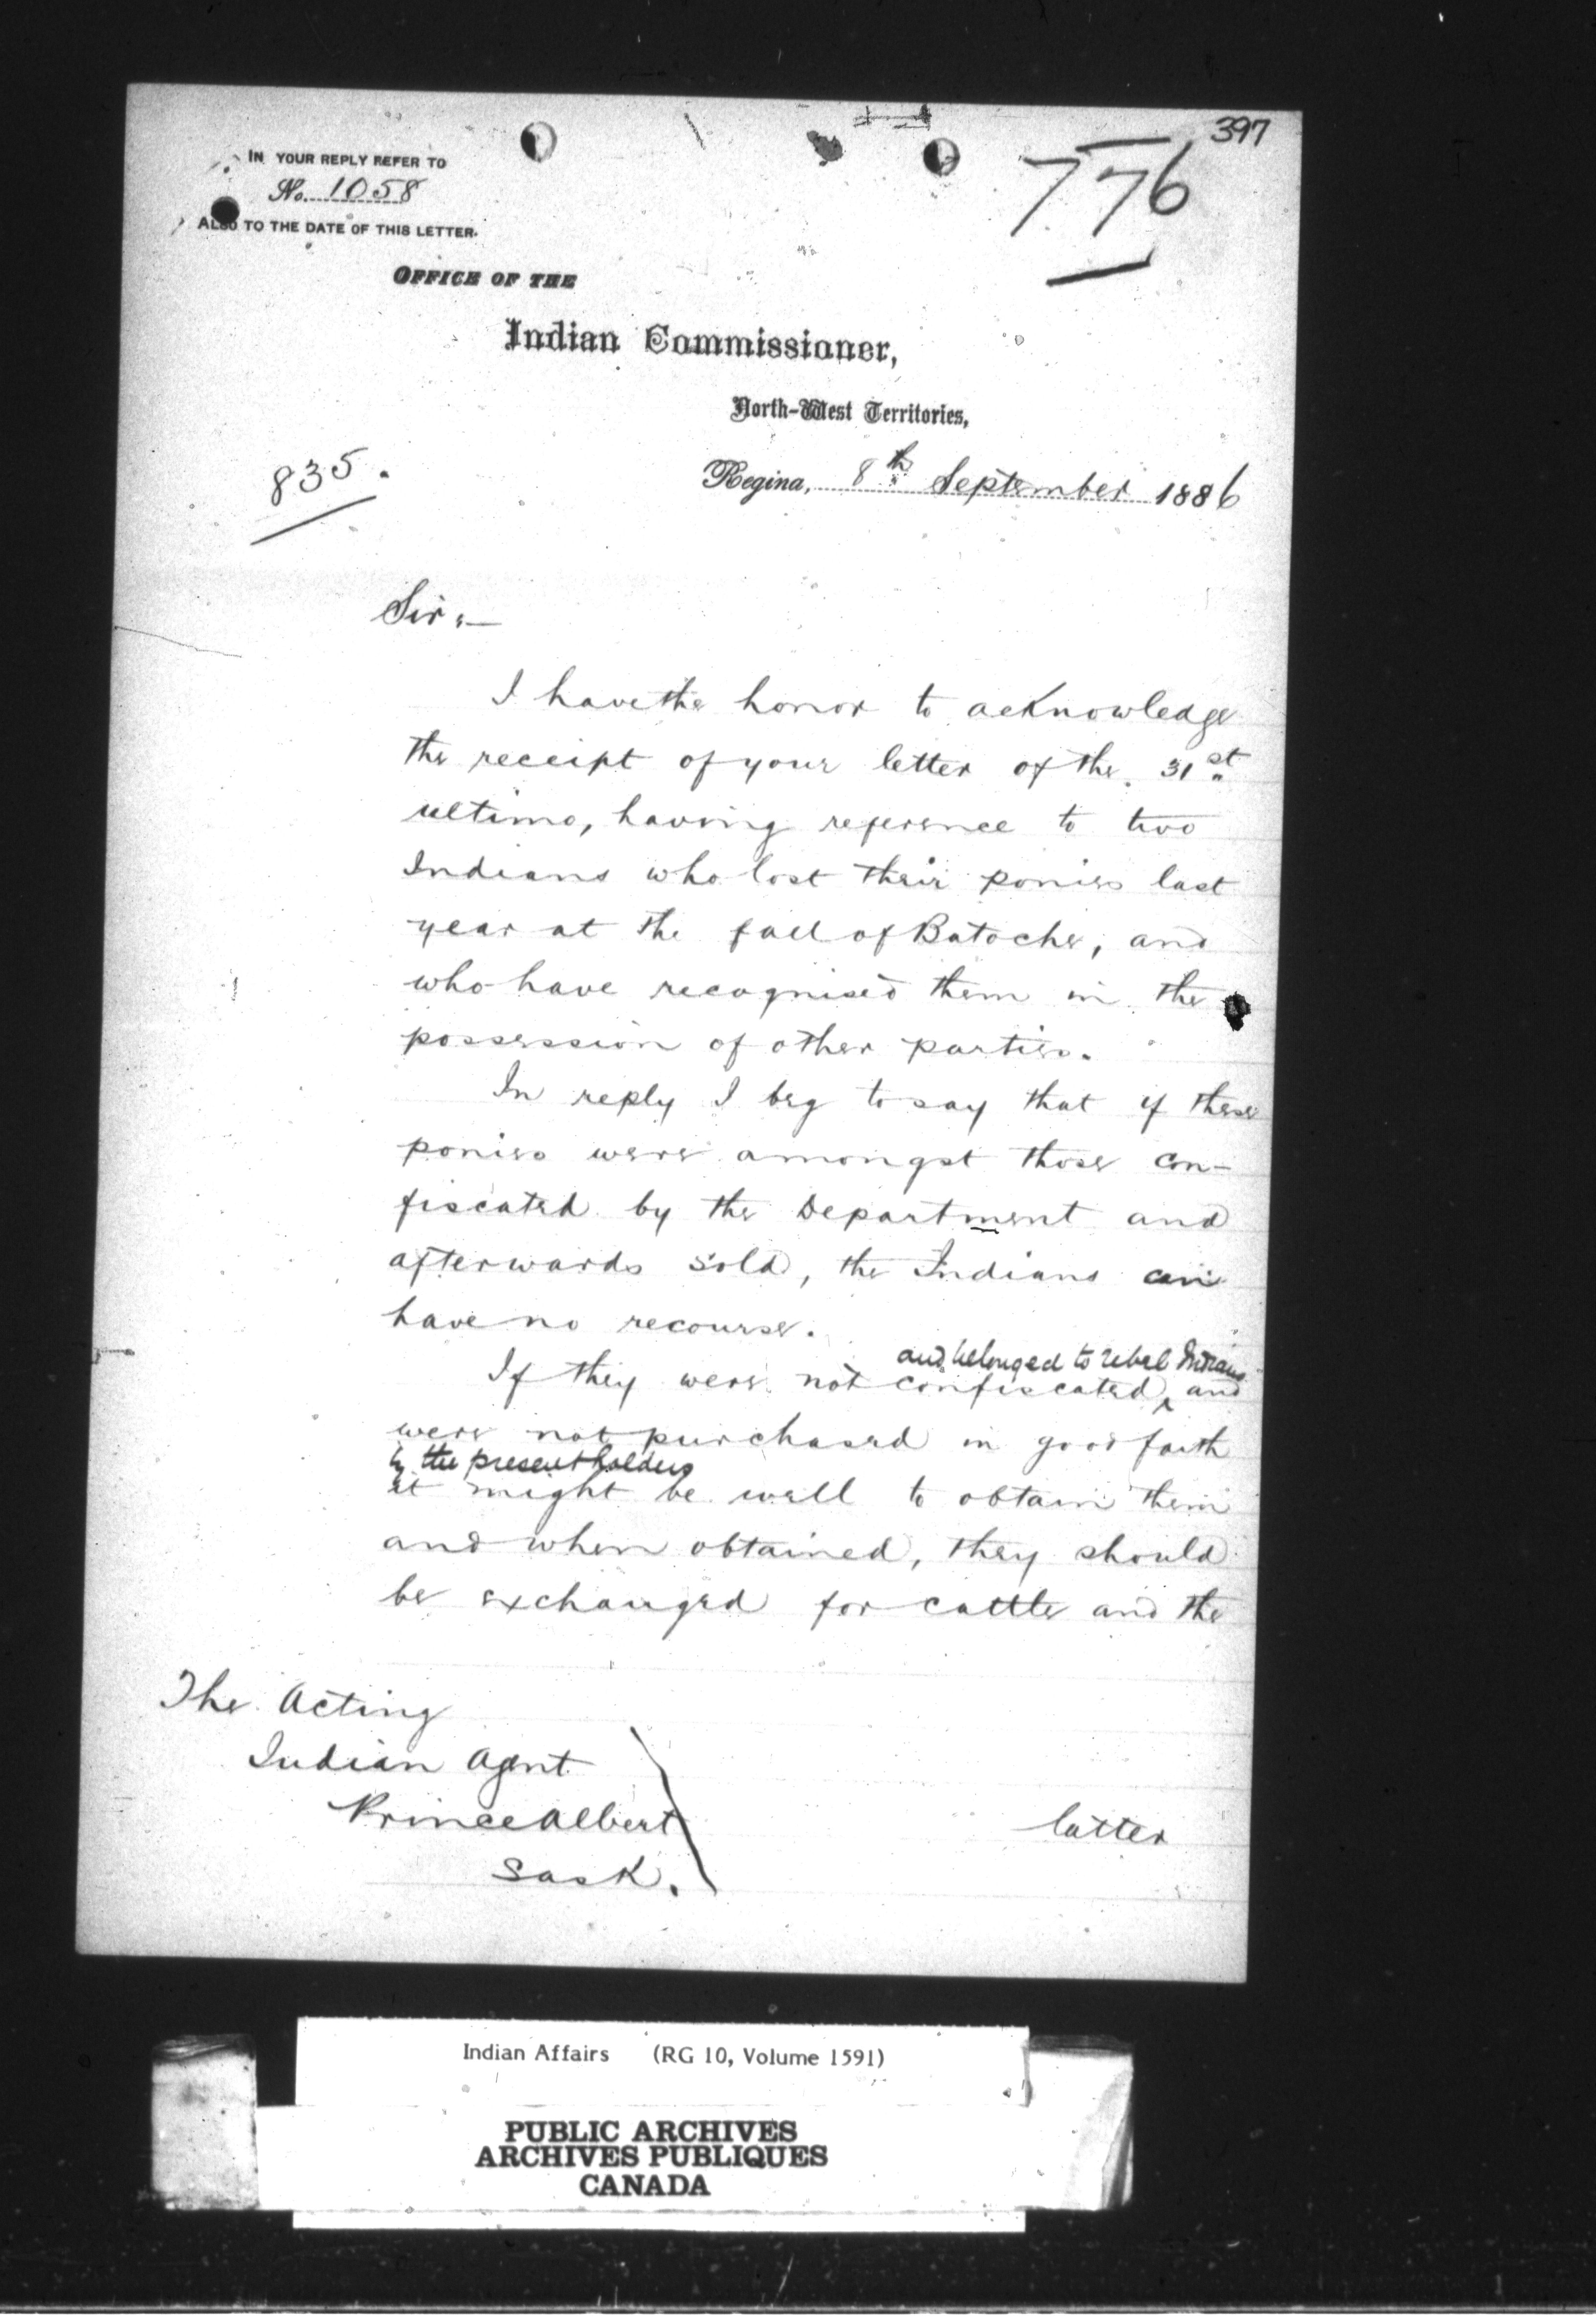 397
IN YOUR REPLY REFER TO
No. 1058
ALSO TO THE DATE OF THIS LETTER.
776
OFFICE OF THE
Indian Commissioner,
North-West Territories,
835.
Regina, 8th September 1886
Sir:—
I have the honor to acknowledge
the receipt of your letter of the 31st
ultimo, having reference to two
Indians who lost their ponies last
year at the fall of Batoche, and
who have recognised them in the
possession of other parties.
In reply I beg to say that if these
ponies were amongst those con-
fiscated by the Department and
afterwards sold, the Indians can
have no recourse.
and belonged to rebel Indians
If they were not confiscated, and
were not purchased in good faith
by the present holders
it might be well to obtain them
and when obtained, they should
be exchanged for cattle and the
The Acting
Indian Agent
Prince Albert
Sask.
latter
Indian Affairs (RG 10, Volume 1591)
PUBLIC ARCHIVES
ARCHIVES PUBLIQUES
CANADA